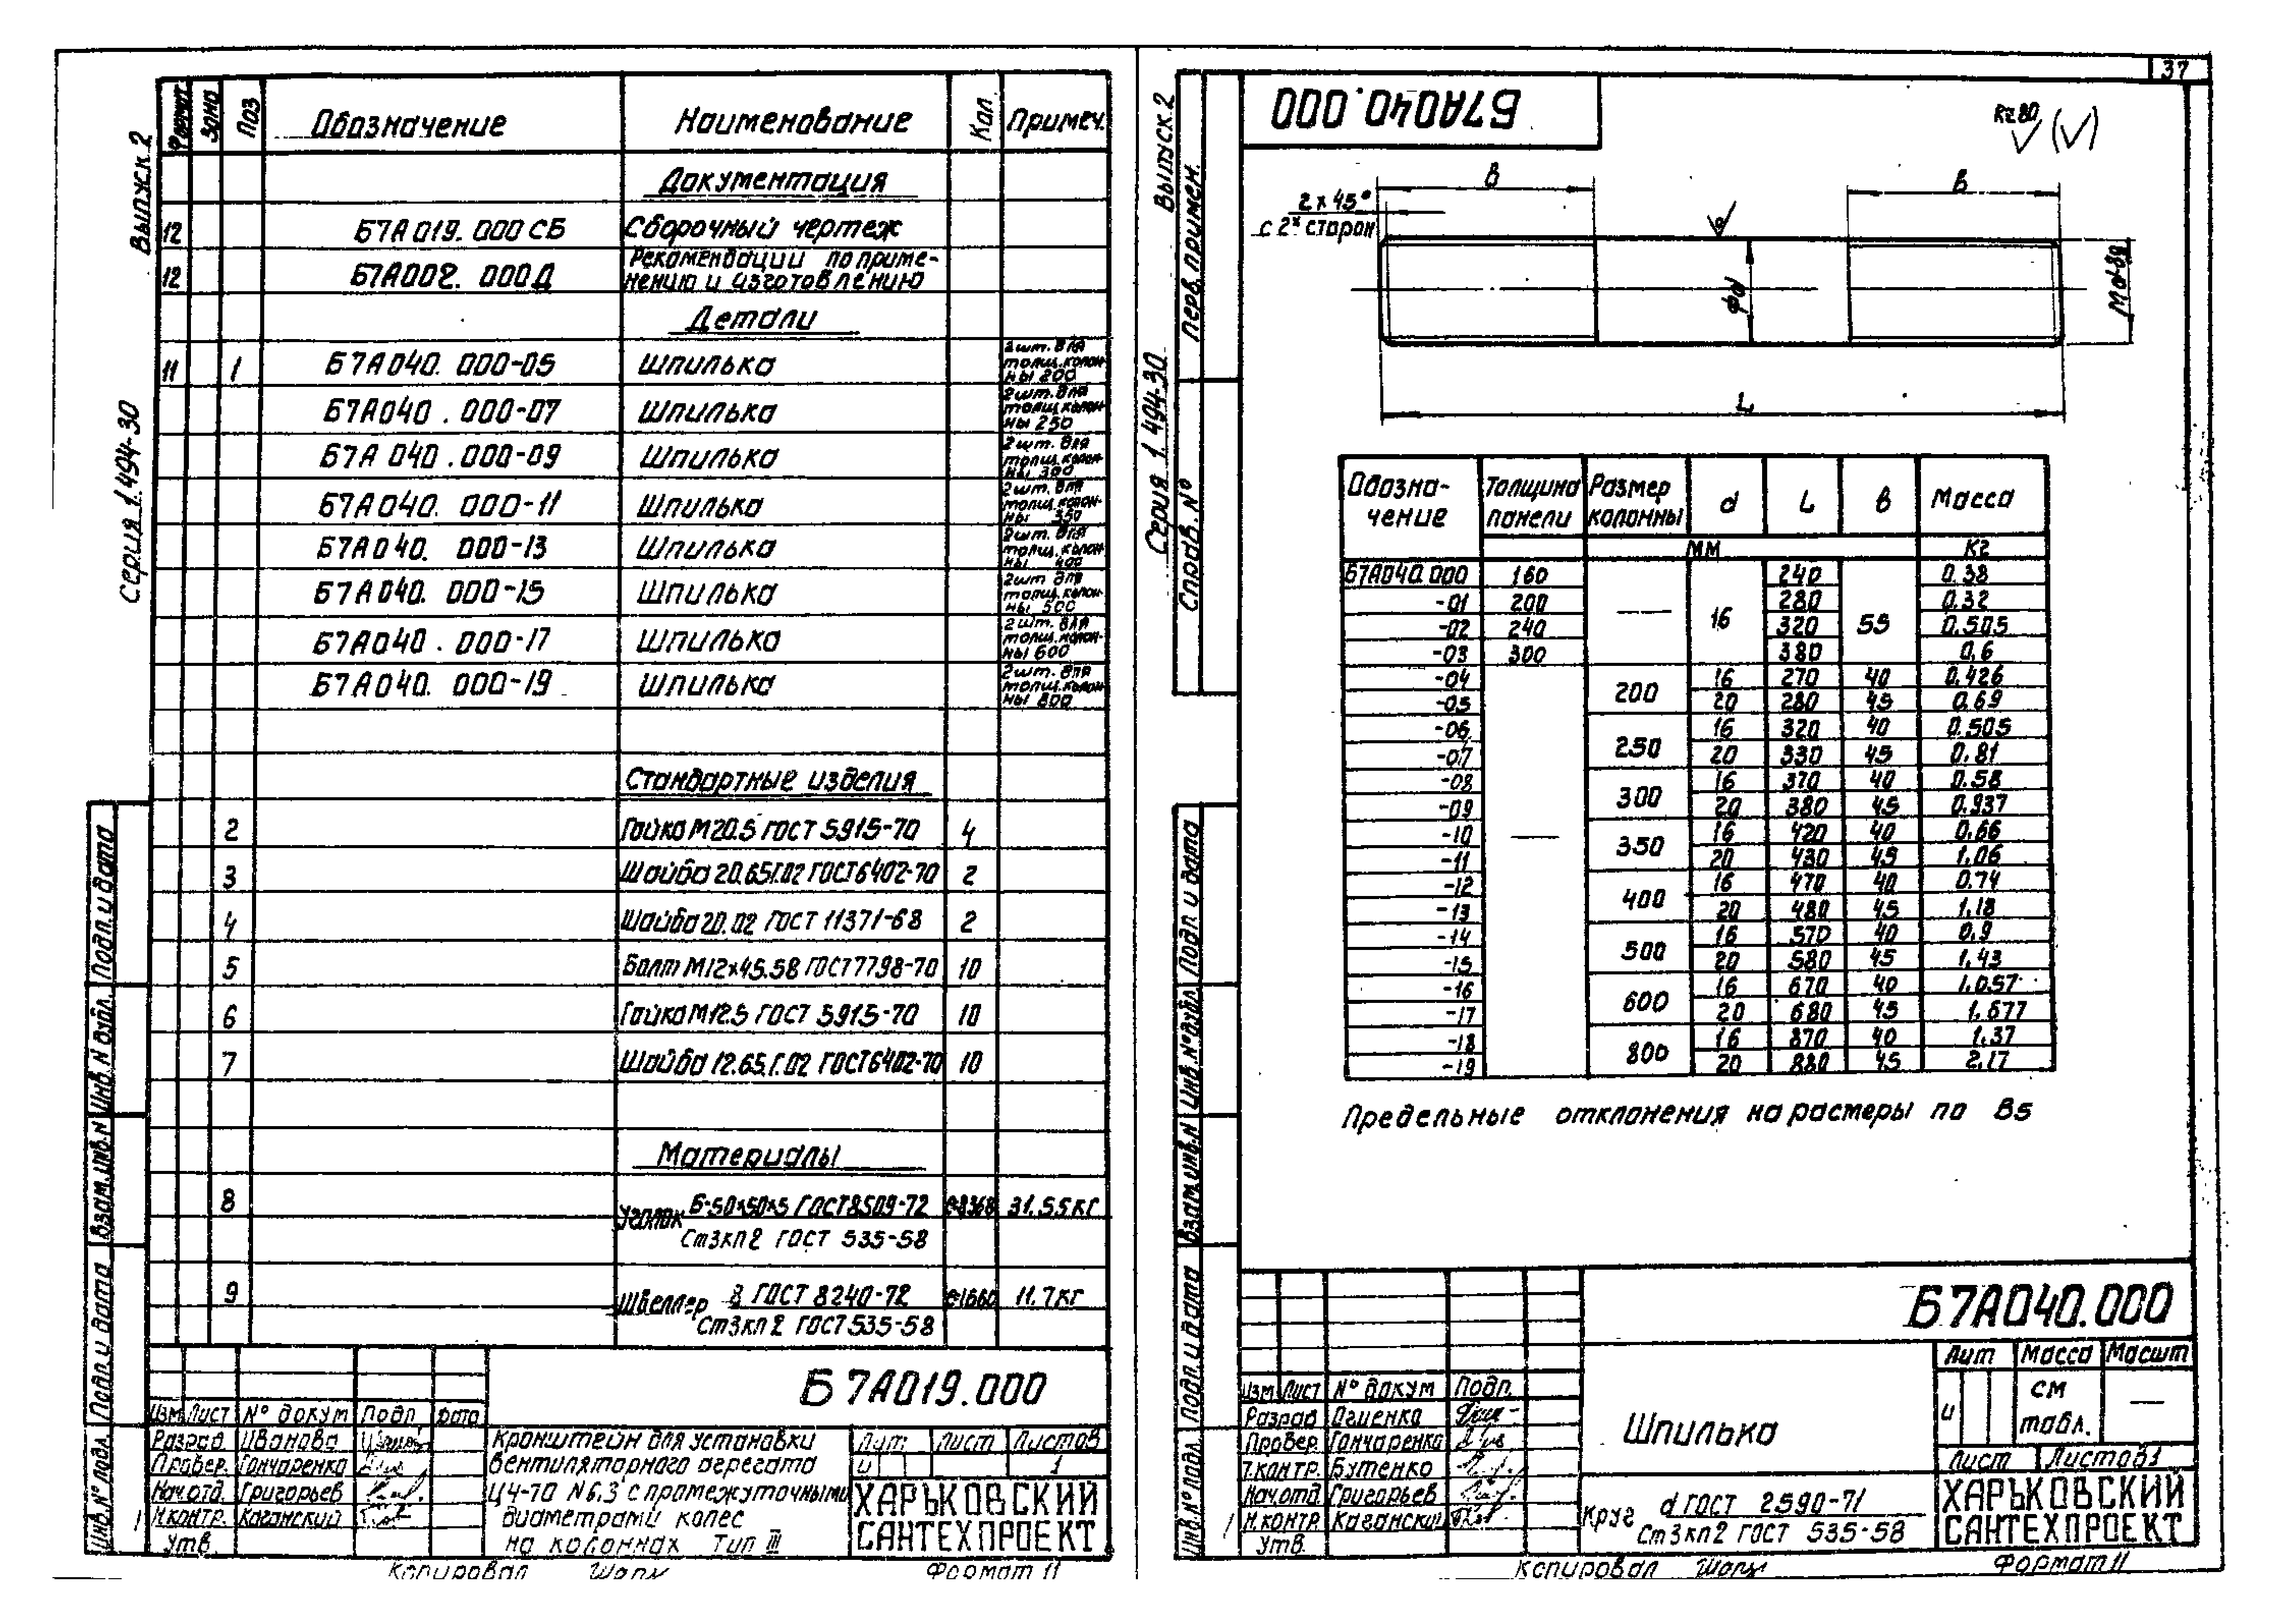 Выпуск 2
Серия 1.494-30
Формат Зона Поз Обозначение Наименование Кол Примеч.
Документация
12 Б7А019.000 СБ Сборочный чертеж
12 Б7А002.000Д Рекомендации по приме-
нению и изготовлению
Детали
11 1 Б7А040.000-05 Шпилька 2шт. для
толщ.колон-
ны 200
Б7А040.000-07 Шпилька 2шт. для
толщ.колон-
ны 250
Б7А040.000-09 Шпилька 2шт. для
толщ.колон-
ны 300
Б7А040.000-11 Шпилька 2шт. для
толщ.колон-
ны 350
Б7А040.000-13 Шпилька 2шт. для
толщ.колон-
ны 400
Б7А040.000-15 Шпилька 2шт для
толщ.колон-
ны 500
Б7А040.000-17 Шпилька 2шт. для
толщ.колон-
ны 600
Б7А040.000-19 Шпилька 2шт. для
толщ.колон-
ны 800
Стандартные изделия
2 Гайка М20.5 ГОСТ 5915-70 4
3 Шайба 20.65Г.02 ГОСТ6402-70 2
4 Шайба 20.02 ГОСТ 11371-68 2
5 Болт М12×45.58 ГОСТ7798-70 10
6 Гайка М12.5 ГОСТ 5915-70 10
7 Шайба 12.65.Г.02 ГОСТ6402-70 10
Материалы
8 Уголок Б-50×50×5 ГОСТ8509-72 ℓ-8368 31.55кг
Ст3кп2 ГОСТ 535-58
9 Швеллер 8 ГОСТ 8240-72 ℓ-1660 11.7кг
Ст3кп2 ГОСТ535-58
Подп. и дата
Инв.N дубл.
Взам.инв.N
Подп. и дата
Инв.N° подл.
Б7А019.000
Изм Лист N° докум Подп Дата
Разраб Иванова
Провер. Гончаренко
Нач.отд. Григорьев
Н.контр. Каганский
Утв.
Кронштейн для установки
вентиляторного агрегата
Ц4-70 N6,3 с промежуточными
диаметрами колес
на колоннах Тип III
Лит Лист Листов
и 1
ХАРЬКОВСКИЙ
САНТЕХПРОЕКТ
Копировал Формат 11
37
Выпуск.2
Серия 1.494-30
Перв. примен.
Справ. N°
Б7А040.000
Rz80
(√)
2×45°
с 2х сторон
в
в
фd
Мd-8g
L
Обозна-
чение Толщина
панели Размер
колонны d L в Масса
мм кг
Б7А040.000 160 — 16 240 55 0.38
-01 200 280 0.32
-02 240 320 0.505
-03 300 380 0.6
-04 — 200 16 270 40 0.426
-05 20 280 45 0.69
-06 250 16 320 40 0.505
-07 20 330 45 0.81
-08 300 16 370 40 0.58
-09 20 380 45 0.937
-10 350 16 420 40 0.66
-11 20 430 45 1.06
-12 400 16 470 40 0.74
-13 20 480 45 1.18
-14 500 16 570 40 0.9
-15 20 580 45 1.43
-16 600 16 670 40 1.057
-17 20 680 45 1.677
-18 800 16 870 40 1.37
-19 20 880 45 2.17
Предельные отклонения на размеры по В5
Подп. и дата
Инв.N°дубл.
Взам.инв.N
Подп. и дата
Инв.N°подл.
Б7А040.000
Изм Лист N° докум Подп.
Разраб Огиенко
Провер. Гончаренко
Т.контр. Бутенко
Нач.отд Григорьев
Н.контр. Каганский
Утв.
Шпилька
Лит Масса Масшт
и см
табл. —
Лист Листов1
Круг d ГОСТ 2590-71
Ст3кп2 ГОСТ 535-58
ХАРЬКОВСКИЙ
САНТЕХПРОЕКТ
Копировал Формат 11